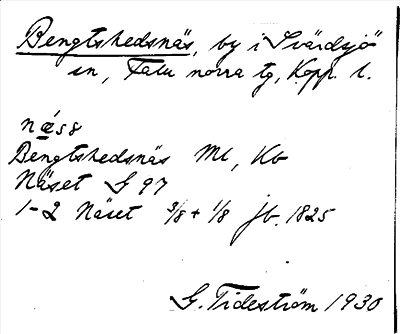 Bengtshedsnäs, by i Svärdsjö
sn, Falu norra tg, Kopp. l.
nǽs8
Bengtshedsnäs Ml, Kb
Näset G 97
1-2 Näset 3/8 + 1/8 jb. 1825
G. Tideström 1930